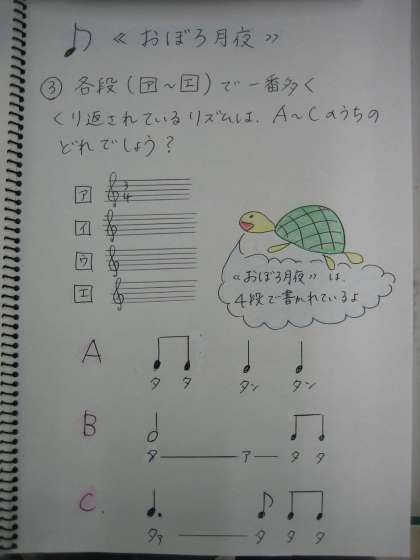 《おぼろ月夜》
③ 各段(ア〜エ)で一番多く
くり返されているリズムは、A〜Cのうちの
どれでしょう?
ア 3/4
イ
ウ
エ
《おぼろ月夜》は、
4段で書かれているよ
A
タ タ タン タン
B
タ ― ア ― タ タ
C.
タァ ― タ タ タ